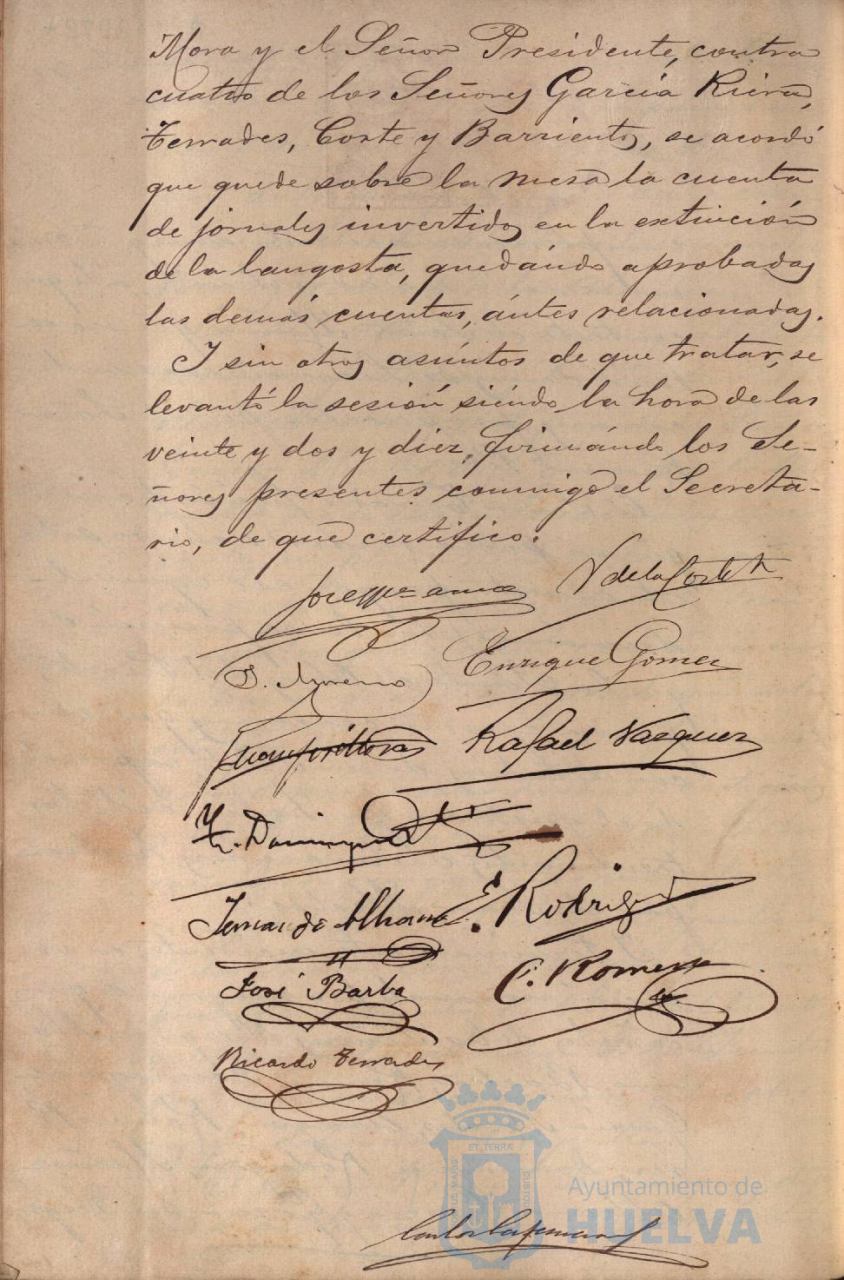 Mora y el Señor Presidente, contra
cuatro de los Señores García Riera,
Terrades, Corte y Barrientos, se acordó
que quede sobre la mesa la cuenta
de jornales invertidos en la extinción
de la langosta, quedándo aprobadas
las demás cuentas, ántes relacionadas.
I sin otros asúntos de que tratar, se
levantó la sesión siéndo la hora de las
veinte y dos y diez, firmándo los Se-
ñores presentes conmigo el Secreta-
rio, de que certifico.
V de la Corte
J. Moreno Enrique Gomez
Rafael Vazquez
Rodriguez
José Barba C. Romero
Ricardo Terrades
ET TERRA
Ayuntamiento de
HUELVA